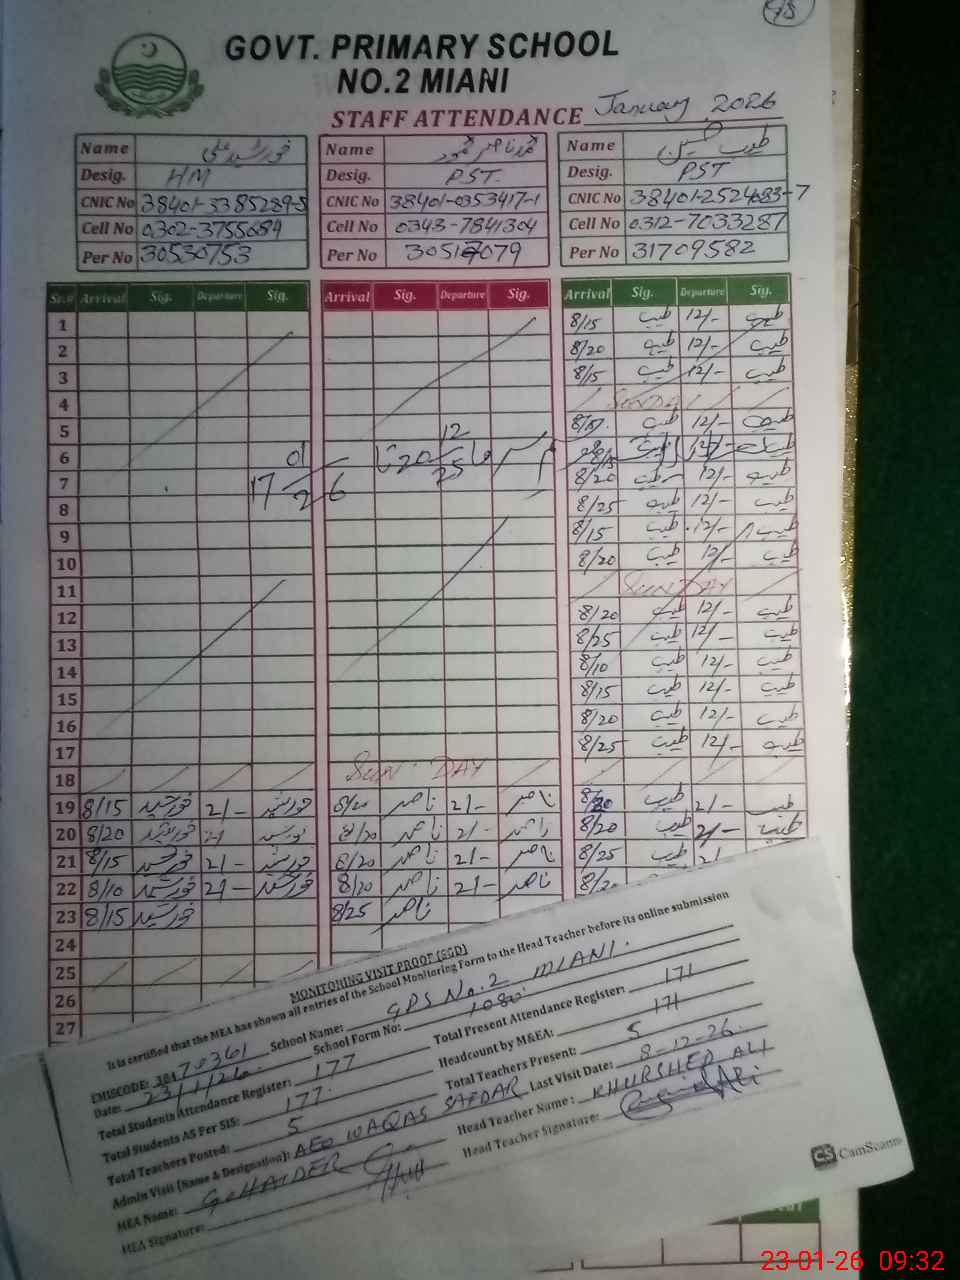 95
GOVT. PRIMARY SCHOOL
NO.2 MIANI
STAFF ATTENDANCE January 2026
Name خورشید علی Name محمد ناصر محمود Name طیب حسین
Desig. HM Desig. PST. Desig. PST
CNIC No 38401-5385289-5 CNIC No 38401-0353417-1 CNIC No 38401-2524083-7
Cell No 0302-3755684 Cell No 0343-7841304 Cell No 0312-7033287
Per No 30530753 Per No Per No 31709582
Sr.# Arrival Sig. Departure Sig. Arrival Sig. Departure Sig. Arrival Sig. Departure Sig.
1 8/15 طیب 12/- طیب
2 8/20 طیب 12/- طیب
3 8/15 طیب 12/- طیب
4 SUNDAY
5 طیب 12/- طیب
6 17/01/26 تا 20/12/25
7 8/20 طیب 12/- طیب
8 8/25 طیب 12/- طیب
9 8/15 طیب 12/- طیب
10 8/20 طیب 12/- طیب
11 SUNDAY
12 8/20 طیب 12/- طیب
13 8/25 طیب 12/- طیب
14 8/10 طیب 12/- طیب
15 8/15 طیب 12/- طیب
16 8/20 طیب 12/- طیب
17 8/25 طیب 12/- طیب
18 SUN DAY
19 8/15 خورشید 2/- خورشید 8/20 ناصر 2/- ناصر 8/20 طیب 2/- طیب
20 8/20 خورشید 2/- خورشید 8/20 ناصر 2/- ناصر 8/20 طیب 2/- طیب
21 8/15 خورشید 2/- خورشید 8/20 ناصر 2/- ناصر 8/25 طیب 2/-
22 8/10 خورشید 2/- خورشید 8/20 ناصر 2/- ناصر 8/20
23 8/15 خورشید 8/25 ناصر
24
25
26
27
MONITORING VISIT PROOF (SGD)
It is certified that the MEA has shown all entries of the School Monitoring Form to the Head Teacher before its online submission
EMISCODE: School Name: GPS No.2 MIANI.
Date: 23/1/26 School Form No: 1080
Total Students Attendance Register: 177 Total Present Attendance Register: 171
Total Students AS Per SIS: 177. Headcount by M&EA: 171
Total Teachers Posted: 5 Total Teachers Present: 5
Admin Visit (Name & Designation): AEO WAQAS SAFDAR Last Visit Date: 8-12-26.
MEA Name: G. HAIDER Head Teacher Name: KHURSHED ALI
MEA Signature: Head Teacher Signature:
CS CamScann
23-01-26 09:32